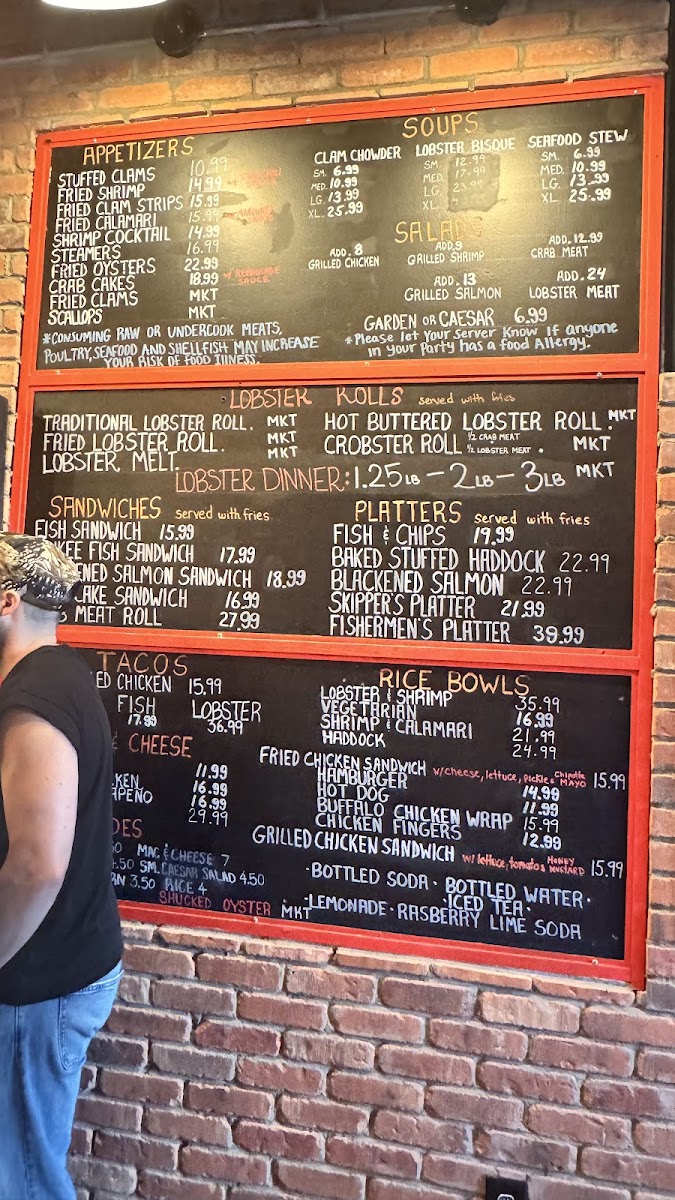 APPETIZERS
STUFFED CLAMS 10.99
FRIED SHRIMP 14.99
FRIED CLAM STRIPS 15.99
FRIED CALAMARI 15.99
SHRIMP COCKTAIL 14.99
STEAMERS 16.99
FRIED OYSTERS 22.99
CRAB CAKES 18.99 W/ REMOULADE SAUCE
FRIED CLAMS MKT
SCALLOPS MKT
*CONSUMING RAW OR UNDERCOOK MEATS,
POULTRY, SEAFOOD AND SHELLFISH MAY INCREASE
YOUR RISK OF FOOD ILLNESS.
SOUPS
CLAM CHOWDER
SM. 6.99
MED. 10.99
LG. 13.99
XL. 25.99
LOBSTER BISQUE
SM. 12.99
MED. 17.99
LG.
XL.
SEAFOOD STEW
SM. 6.99
MED. 10.99
LG. 13.99
XL. 25.99
SALADS
ADD. 8
GRILLED CHICKEN
ADD. 9
GRILLED SHRIMP
ADD. 12.99
CRAB MEAT
ADD. 13
GRILLED SALMON
ADD. 24
LOBSTER MEAT
GARDEN OR CAESAR 6.99
*Please let your server know if anyone
in your party has a food Allergy.
LOBSTER ROLLS served with fries
TRADITIONAL LOBSTER ROLL. MKT
FRIED LOBSTER ROLL. MKT
LOBSTER MELT. MKT
HOT BUTTERED LOBSTER ROLL. MKT
CROBSTER ROLL 1/2 CRAB MEAT 1/2 LOBSTER MEAT . MKT
LOBSTER DINNER: 1.25LB - 2LB - 3LB MKT
SANDWICHES served with fries
FISH SANDWICH 15.99
KEE FISH SANDWICH 17.99
ENED SALMON SANDWICH 18.99
AKE SANDWICH 16.99
MEAT ROLL 27.99
PLATTERS served with fries
FISH & CHIPS 19.99
BAKED STUFFED HADDOCK 22.99
BLACKENED SALMON 22.99
SKIPPER'S PLATTER 21.99
FISHERMEN'S PLATTER 39.99
TACOS
ED CHICKEN 15.99
FISH 17.99
LOBSTER 36.99
& CHEESE
11.99
KEN 16.99
APEÑO 16.99
29.99
DES
50 MAC & CHEESE 7
4.50 SM. CAESAR SALAD 4.50
RN 3.50 RICE 4
SHUCKED OYSTER MKT
RICE BOWLS
LOBSTER & SHRIMP 35.99
VEGETARIAN 16.99
SHRIMP & CALAMARI 21.99
HADDOCK 24.99
FRIED CHICKEN SANDWICH w/cheese, lettuce, pickle & Chipotle MAYO 15.99
HAMBURGER 14.99
HOT DOG 11.99
BUFFALO CHICKEN WRAP 15.99
CHICKEN FINGERS 12.99
GRILLED CHICKEN SANDWICH w/ lettuce, tomatos HONEY MUSTARD 15.99
·BOTTLED SODA· BOTTLED WATER·
·ICED TEA·
·LEMONADE·RASBERRY LIME SODA